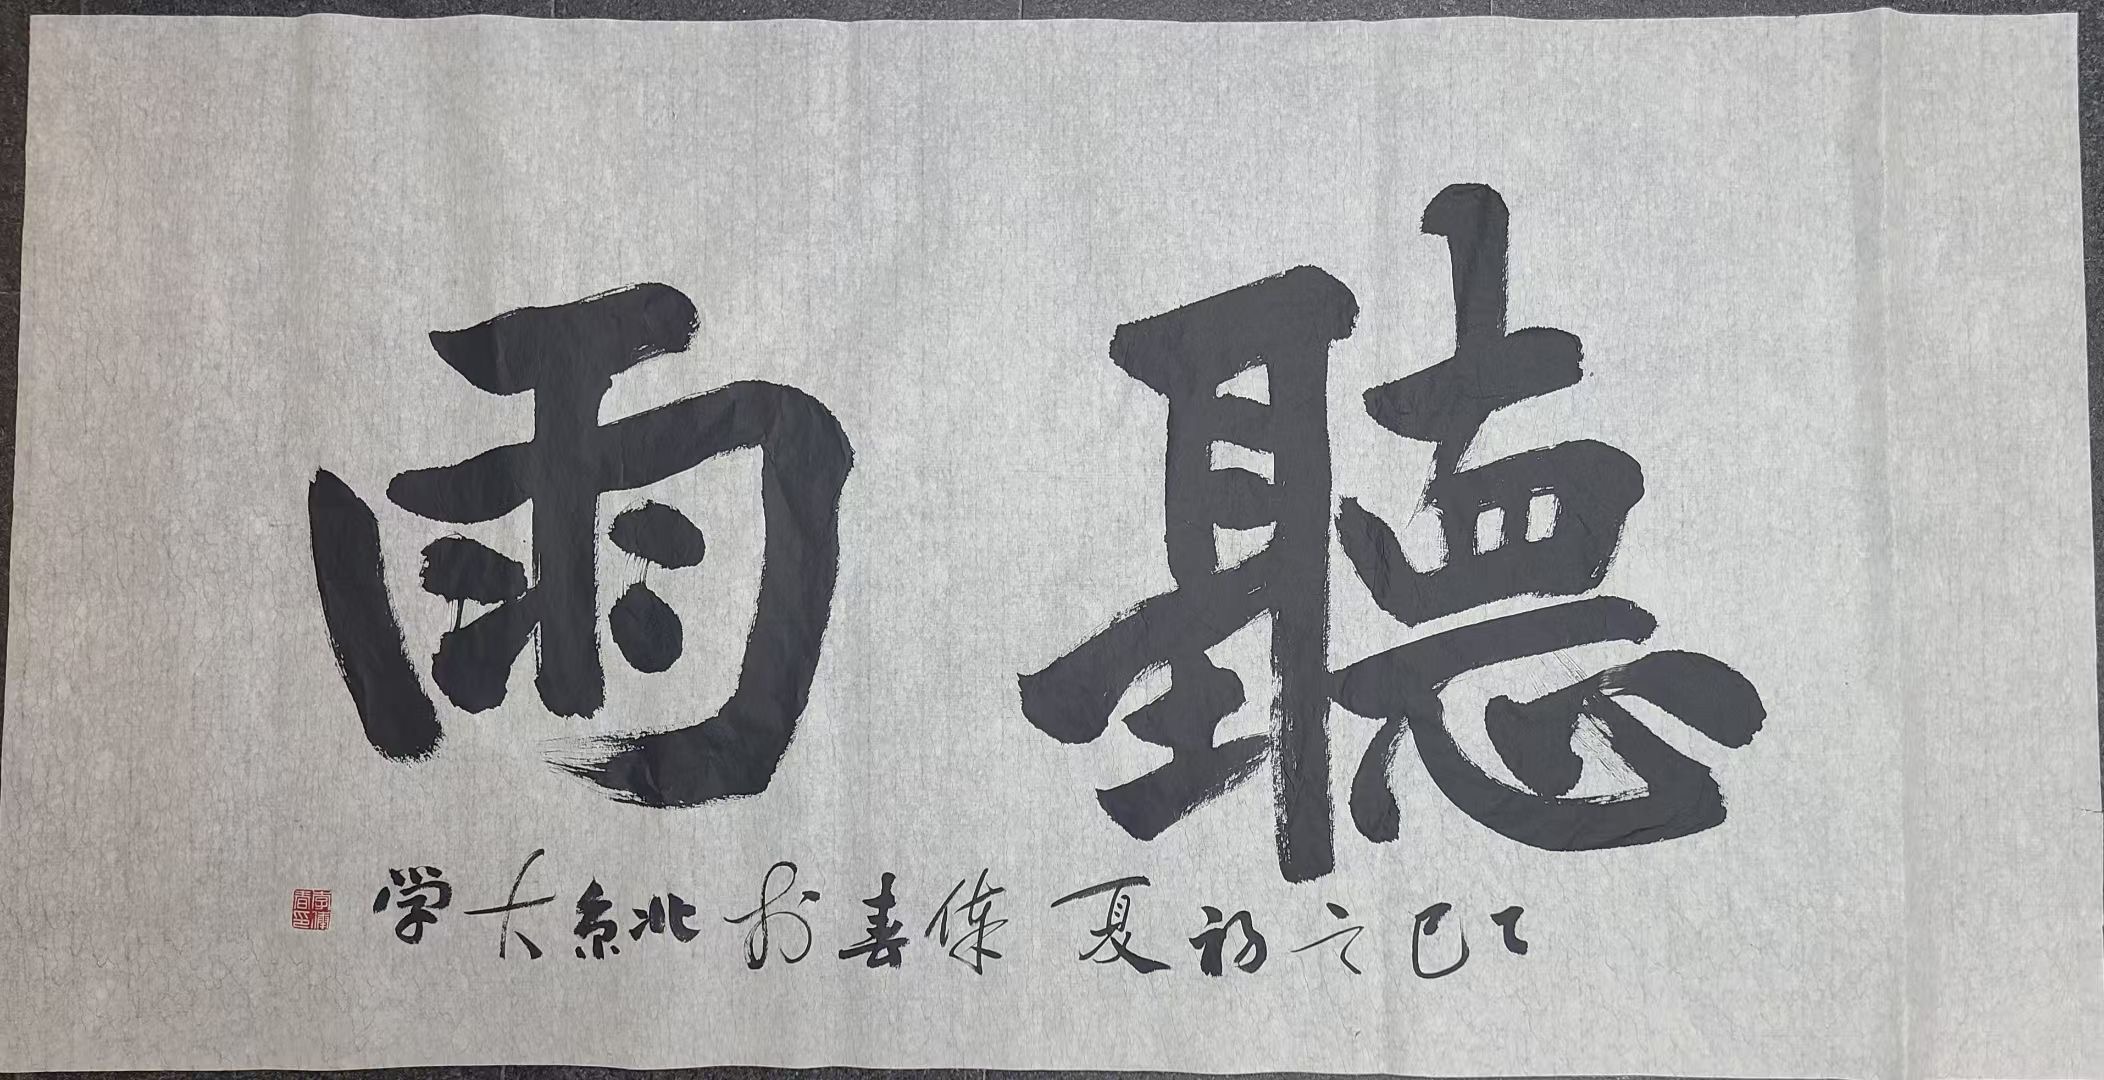 聽雨
乙巳之初夏春於北京大学